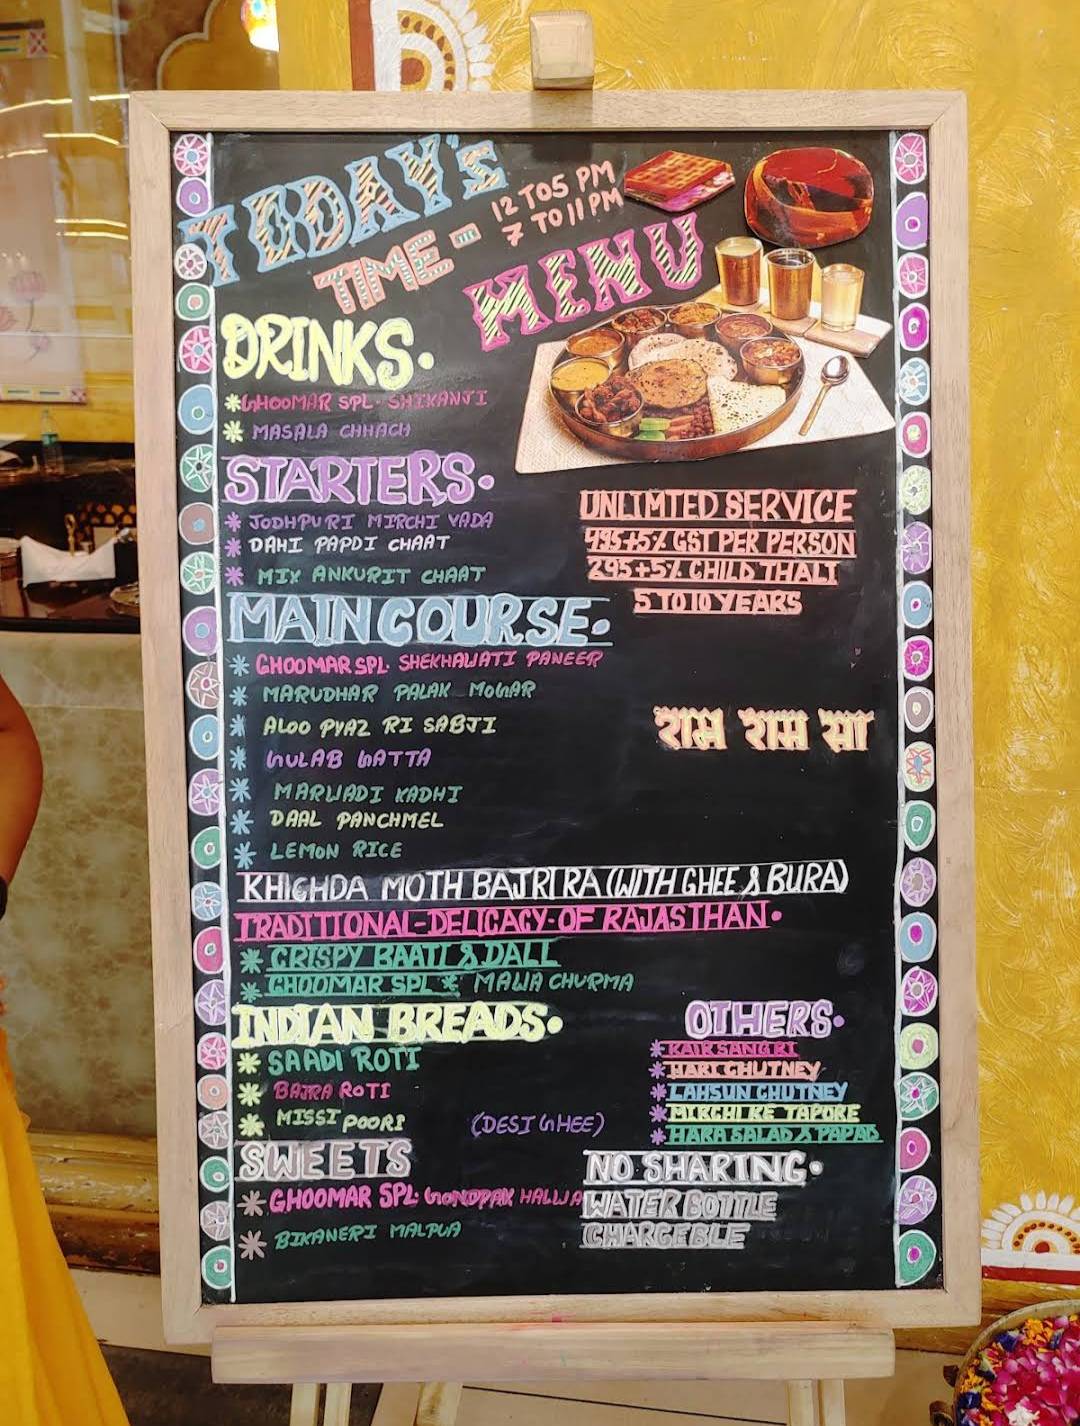 TODAY's
TIME - 12 TO 5 PM
7 TO 11 PM
MENU
DRINKS.
*GHOOMAR SPL. SHIKANJI
* MASALA CHHACH
STARTERS.
* JODHPURI MIRCHI VADA
* DAHI PAPDI CHAAT
* MIX ANKURIT CHAAT
UNLIMTED SERVICE
495+5% GST PER PERSON
295+5% CHILD THALI
5 TO 10 YEARS
MAIN COURSE.
* GHOOMAR SPL. SHEKHAWATI PANEER
* MARUDHAR PALAK MOGAR
* ALOO PYAZ RI SABJI
* GULAB GATTA
* MARWADI KADHI
* DAAL PANCHMEL
* LEMON RICE
राम राम सा
KHICHDA MOTH BAJRI RA (WITH GHEE & BURA)
TRADITIONAL-DELICACY-OF RAJASTHAN.
* CRISPY BAATI & DALL
* GHOOMAR SPL * MAWA CHURMA
INDIAN BREADS.
* SAADI ROTI
* BAJRA ROTI
* MISSI POORI (DESI GHEE)
OTHERS.
* KAIR SANGRI
* HARI CHUTNEY
* LAHSUN CHUTNEY
* MIRCHI KE TAPORE
* HARA SALAD & PAPAD
SWEETS
* GHOOMAR SPL. GONDPAK HALWA
* BIKANERI MALPUA
NO SHARING.
WATER BOTTLE
CHARGEBLE